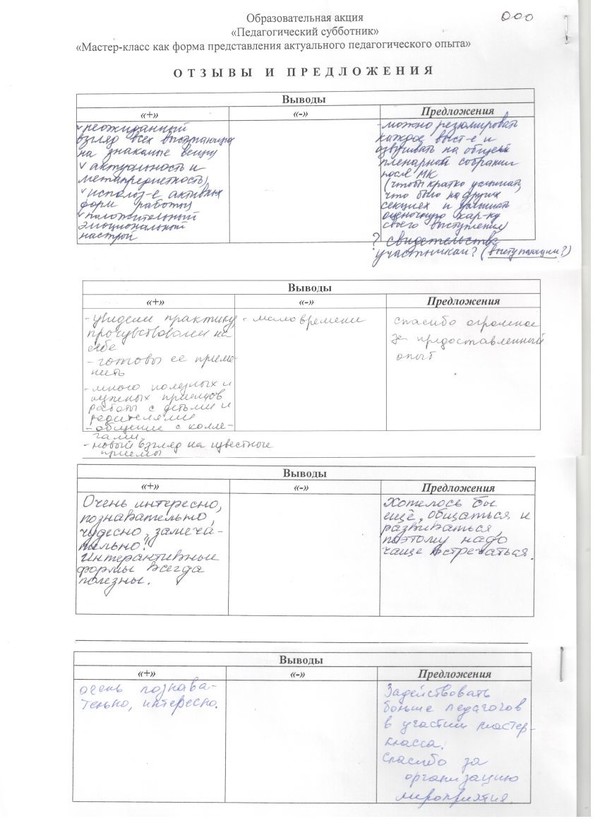 Образовательная акция
«Педагогический субботник»
«Мастер-класс как форма представления актуального педагогического опыта»
ООО
ОТЗЫВЫ И ПРЕДЛОЖЕНИЯ
Выводы
«+» «-» Предложения
v неожиданный
взгляд всех выступающих
на знакомые вещи
v актуальность и
метапредметность;
v использ-е активных
форм работы
v положительный
эмоциональный
настрой
- можно резюмировать
каждое выст-е и
озвучивать на общем
пленарном собрании
после МК
(чтобы кратко услышать
что было на других
секциях и услышать
оценочную хар-ку
своего выступления)
? свидетельства
участникам? (выступающим?)
Выводы
«+» «-» Предложения
- увидели практику,
прочувствовали на
себе
- готовы ее приме-
нять
- много полезных и
нужных приемов
работы с детьми и
родителями
- общение с колле-
гами
- новый взгляд на известные
приемы
- мало времени
спасибо огромное
за предоставленный
опыт
Выводы
«+» «-» Предложения
Очень интересно,
познавательно,
чудесно, замеча-
тельно!
Интерактивные
формы всегда
полезны.
Хотелось бы
ещё, общаться и
развиваться
поэтому надо
чаще встречаться.
Выводы
«+» «-» Предложения
очень познава-
тельно, интересно.
Задействовать
больше педагогов
в участии мастер-
класса.
Спасибо за
организацию
мероприятия.